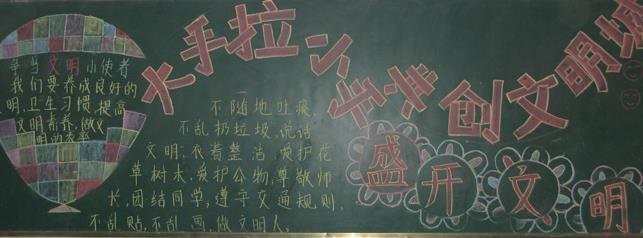 大手拉小手共创文明城
争当文明小使者
我们要养成良好的
明,卫生习惯提高
文明素养,做文
明的衣客
不随地吐痰
不乱扔垃圾,说话
文明,衣着整洁,爱护花
草树木,爱护公物,尊敬师
长,团结同学,遵守交通规则,
不乱贴,不乱画,做文明人。
盛开文明